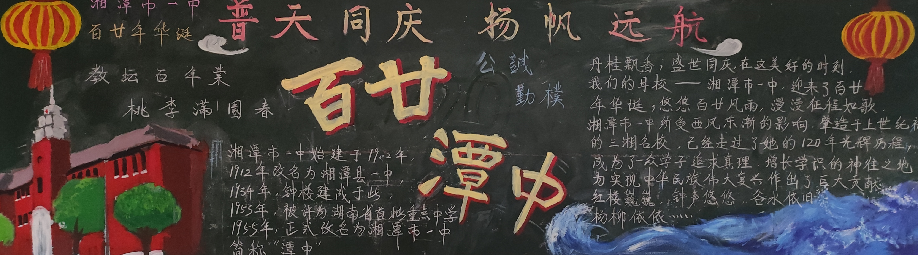 湘潭市一中
百廿年华诞
普天同庆 扬帆远航
教坛百年业
桃李满园春
百廿
潭中
公誠
勤樸
湘潭市一中始建于1902年
1912年改名为湘潭县一中,
1934年,钟楼建成于此,
1953年,被评为湖南省首批重点中学
1955年,正式改名为湘潭市一中
简称"潭中"
丹桂飘香,盛世同庆.在这美好的时刻.
我们的母校——湘潭市一中,迎来了百廿
年华诞,悠悠百廿风雨,漫漫征程如歌.
湘潭市一中所受西风东渐的影响.肇造于上世纪初
的三湘名校,已经走过了她的120年光辉历程,
成为了众学子追求真理、增长学识的神往之地,
为实现中华民族伟大复兴作出了巨大贡献.
红楼巍巍,钟声悠悠,
杨柳依依……